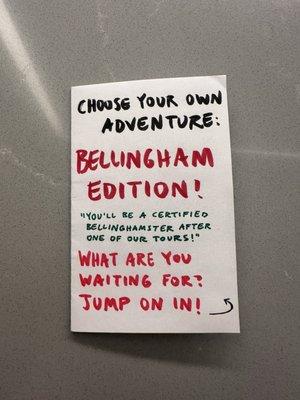 CHOOSE YOUR OWN
ADVENTURE:
BELLINGHAM
EDITION!
"YOU'LL BE A CERTIFIED
BELLINGHAMSTER AFTER
ONE OF OUR TOURS!"
WHAT ARE YOU
WAITING FOR?
JUMP ON IN!